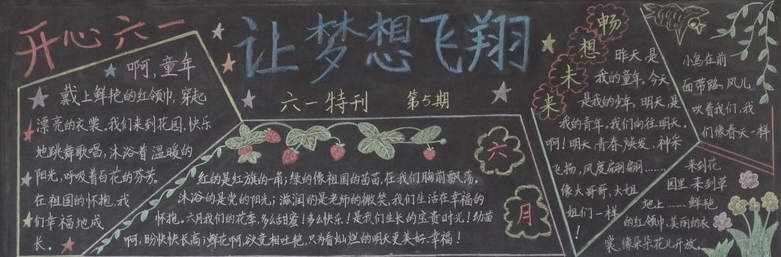 开心六一
让梦想飞翔
六一特刊 第5期
啊,童年
戴上鲜艳的红领巾,穿起
漂亮的衣裳。我们来到花园,快乐
地跳舞歌唱;沐浴着温暖的
阳光,呼吸着百花的芬芳。
在祖国的怀抱,我
们幸福地成
长。
六
月
红的是红旗的一角;绿的像祖国的苗苗,在我们胸前飘荡。
沐浴的是党的阳光;滋润的是老师的微笑,我们生活在幸福的
怀抱。六月我们的花季,多么甜蜜!多么快乐!是我们生长的宝贵时光!幼苗
啊,盼快快长高;鲜花啊,欲竞相吐艳,只为着灿烂的明天更美好、幸福!
畅
想
未
来
昨天,是
我的童年,今天
是我的少年,明天,是
我的青年。我们向往明天,
啊!明天,青春焕发,神采
飞扬,风度翩翩……,
像大哥哥,大姐
姐们一样
!
小鸟在前
面带路,风儿
吹着我们,我
们像春天一样
来到花
园里,来到草
地上……鲜艳
的红领巾,美丽的衣
裳,像朵朵花儿开放。